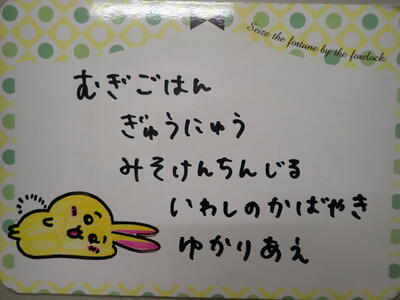 Seize the fortune by the forelock
むぎごはん
ぎゅうにゅう
みそけんちんじる
いわしのかばやき
ゆかりあえ